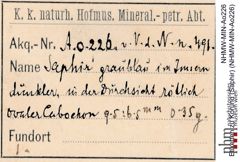 K. k. naturh. Hofmus. Mineral.- petr. Abt.
Akq.- Nr. A.o.226. v. V.d.N.n. 491.
Name Saphir graublau im Innern
dunkler, in der Durchsicht rötlich
ovaler Cabochon 9·5:6·5 mm 0·35 g.
Fundort
1.
NHMW-MIN-Ao226
(NHMW-MIN-Ao226)
nhm